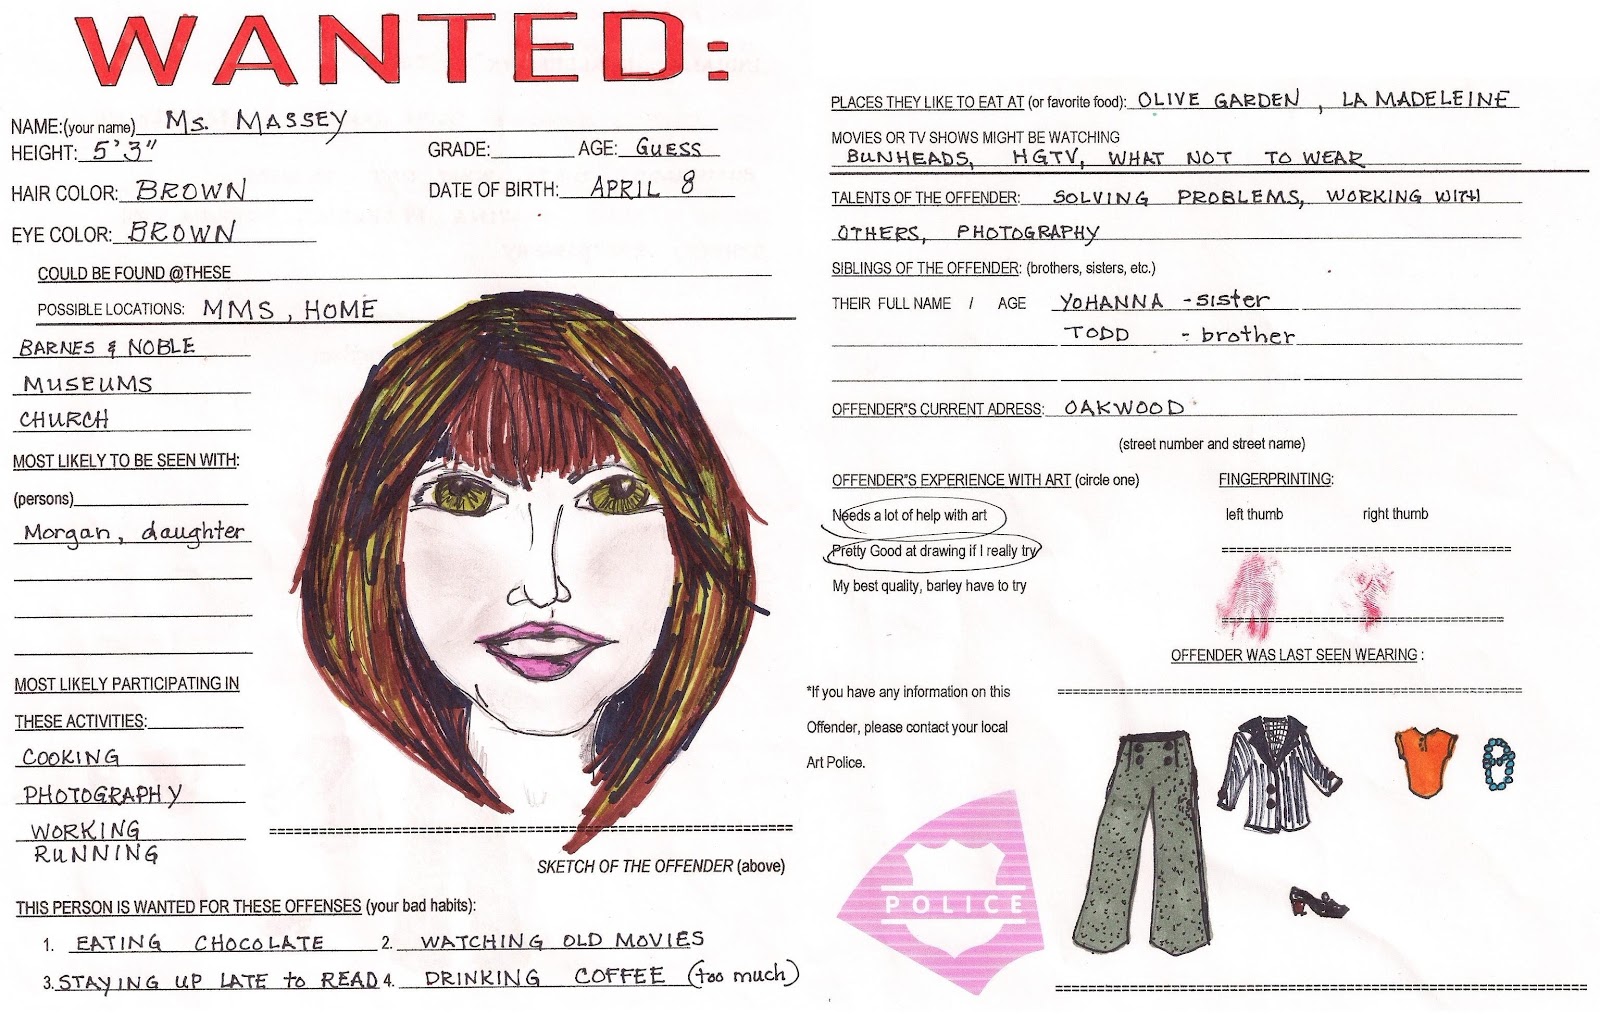 WANTED:
NAME:(your name) Ms. MASSEY
HEIGHT: 5'3" GRADE: AGE: GUESS
HAIR COLOR: BROWN DATE OF BIRTH: APRIL 8
EYE COLOR: BROWN
COULD BE FOUND @THESE
POSSIBLE LOCATIONS: MMS, HOME
BARNES & NOBLE
MUSEUMS
CHURCH
MOST LIKELY TO BE SEEN WITH:
(persons)
Morgan, daughter
MOST LIKELY PARTICIPATING IN
THESE ACTIVITIES:
COOKING
PHOTOGRAPHY
WORKING
RUNNING
SKETCH OF THE OFFENDER (above)
THIS PERSON IS WANTED FOR THESE OFFENSES (your bad habits):
1. EATING CHOCOLATE 2. WATCHING OLD MOVIES
3. STAYING UP LATE to READ 4. DRINKING COFFEE (too much)
PLACES THEY LIKE TO EAT AT (or favorite food): OLIVE GARDEN, LA MADELEINE
MOVIES OR TV SHOWS MIGHT BE WATCHING
BUNHEADS, HGTV, WHAT NOT TO WEAR
TALENTS OF THE OFFENDER: SOLVING PROBLEMS, WORKING WITH
OTHERS, PHOTOGRAPHY
SIBLINGS OF THE OFFENDER: (brothers, sisters, etc.)
THEIR FULL NAME / AGE YOHANNA - sister
TODD - brother
OFFENDER"S CURRENT ADRESS: OAKWOOD
(street number and street name)
OFFENDER"S EXPERIENCE WITH ART (circle one) FINGERPRINTING:
Needs a lot of help with art left thumb right thumb
Pretty Good at drawing if I really try
My best quality, barley have to try
OFFENDER WAS LAST SEEN WEARING :
*If you have any information on this
Offender, please contact your local
Art Police.
POLICE